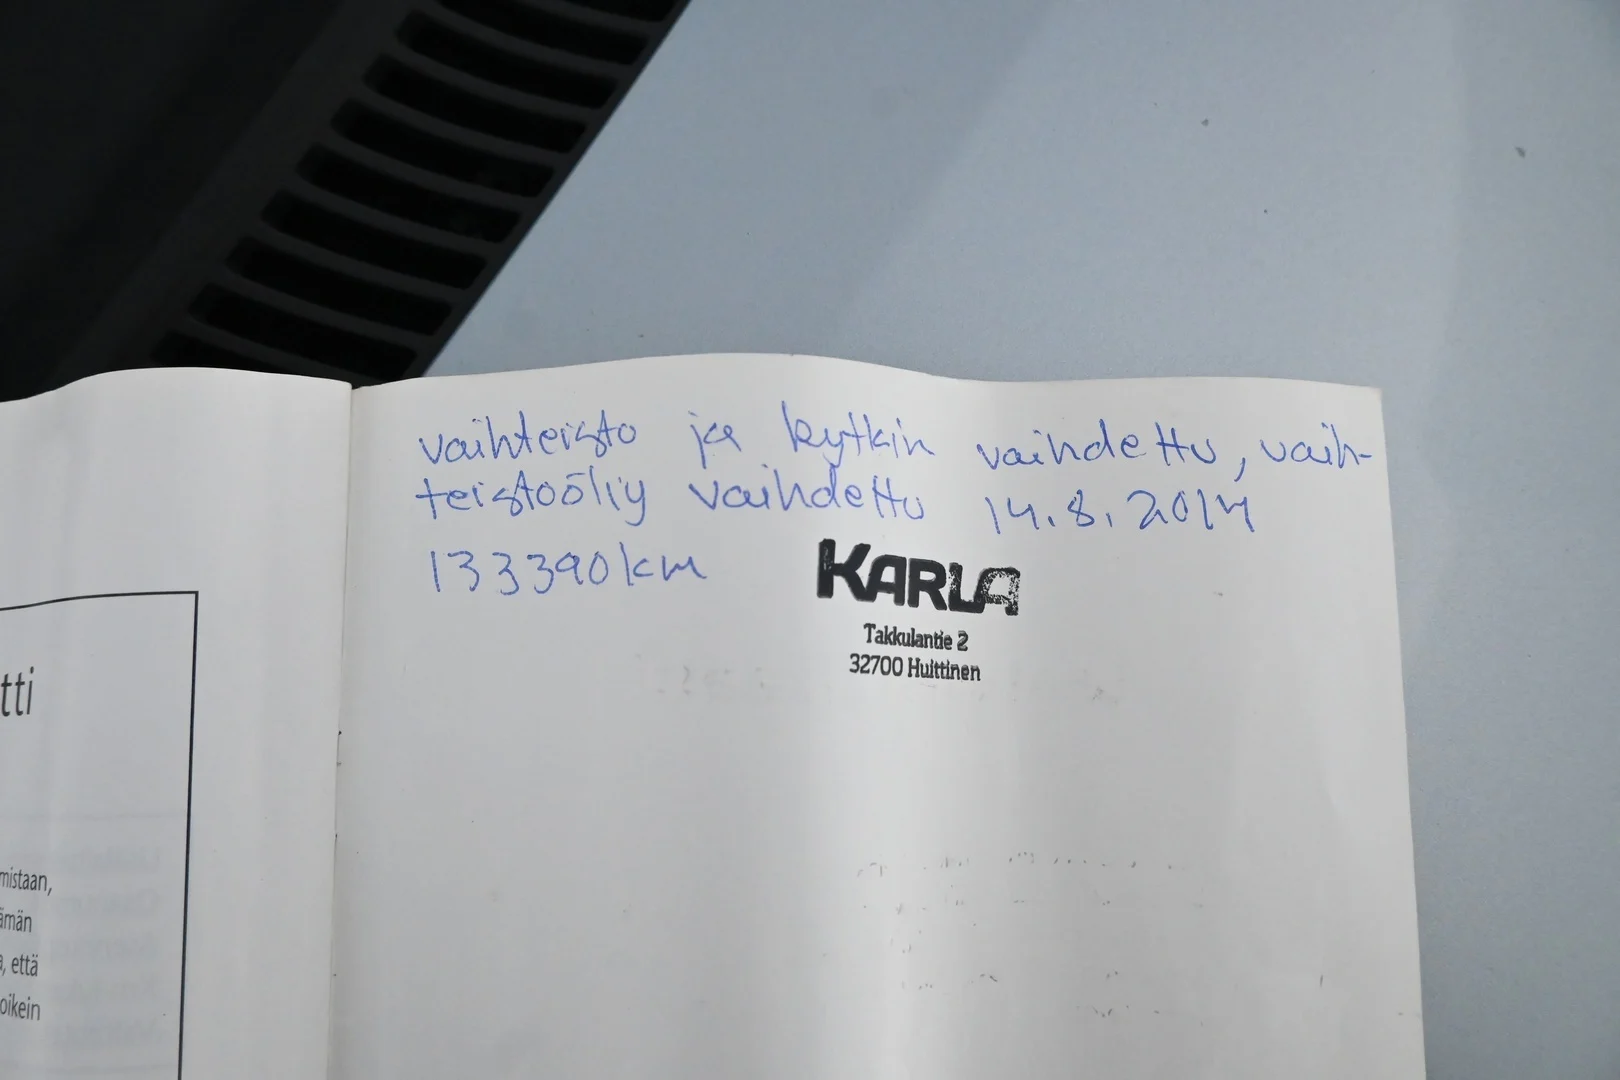 vaihteisto ja kytkin vaihdettu, vaih-
teistoöljy vaihdettu 14.8.2014
133390km
KARLA
Takkulantie 2
32700 Huittinen
tti
mistaan,
ämän
, että
oikein